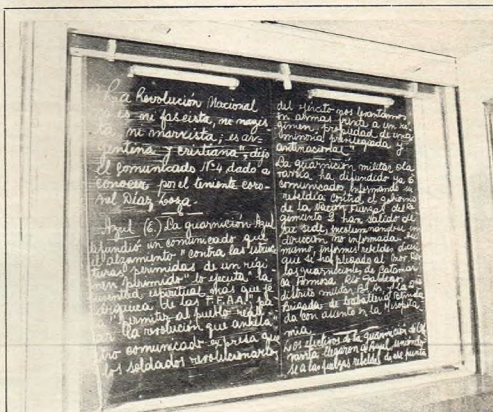 "La Revolución Nacional
es ni fascista, ni nazis
ta, ni marxista; es ar-
gentina y cristiana", dijo
el comunicado Nº4 dado a
conocer por el teniente coro-
nel Díaz Loza.
Azul (6). La guarnición Azul
difundió un comunicado que
el alzamiento "contra las estruc
turas perimidas de un régi
men perimido" lo ejecuta "la
juventud espiritual más que je
rárquica de las FF.AA." pa
ra permitir al pueblo reali
zar la revolución que anhela
otro comunicado expresa que
los soldados revolucionarios
del ejército nos levantamos
en armas frente a un ré
gimen, propiedad de una
minoría privilegiada y
antinacional".
La guarnición militar Ola
varría ha difundido ya 6
comunicados, informando su
rebeldía contra el gobierno
de la Nación. Fuerzas del Re
gimiento 2 han salido de
su sede, encaminándose en
dirección no informada.
mismo, informes rebeldes dicen
que se han plegado al
las guarniciones de Catamar
ca, Formosa, Río Gallegos,
distrito militar Bs As, y la
Brigada de Caballería Blinda
da con asiento en la Mesopota
mia.
Los efectivos de la guarnición de Ola
varría llegaron a Azul uniendo
se a las fuerzas rebeldes de ese punto